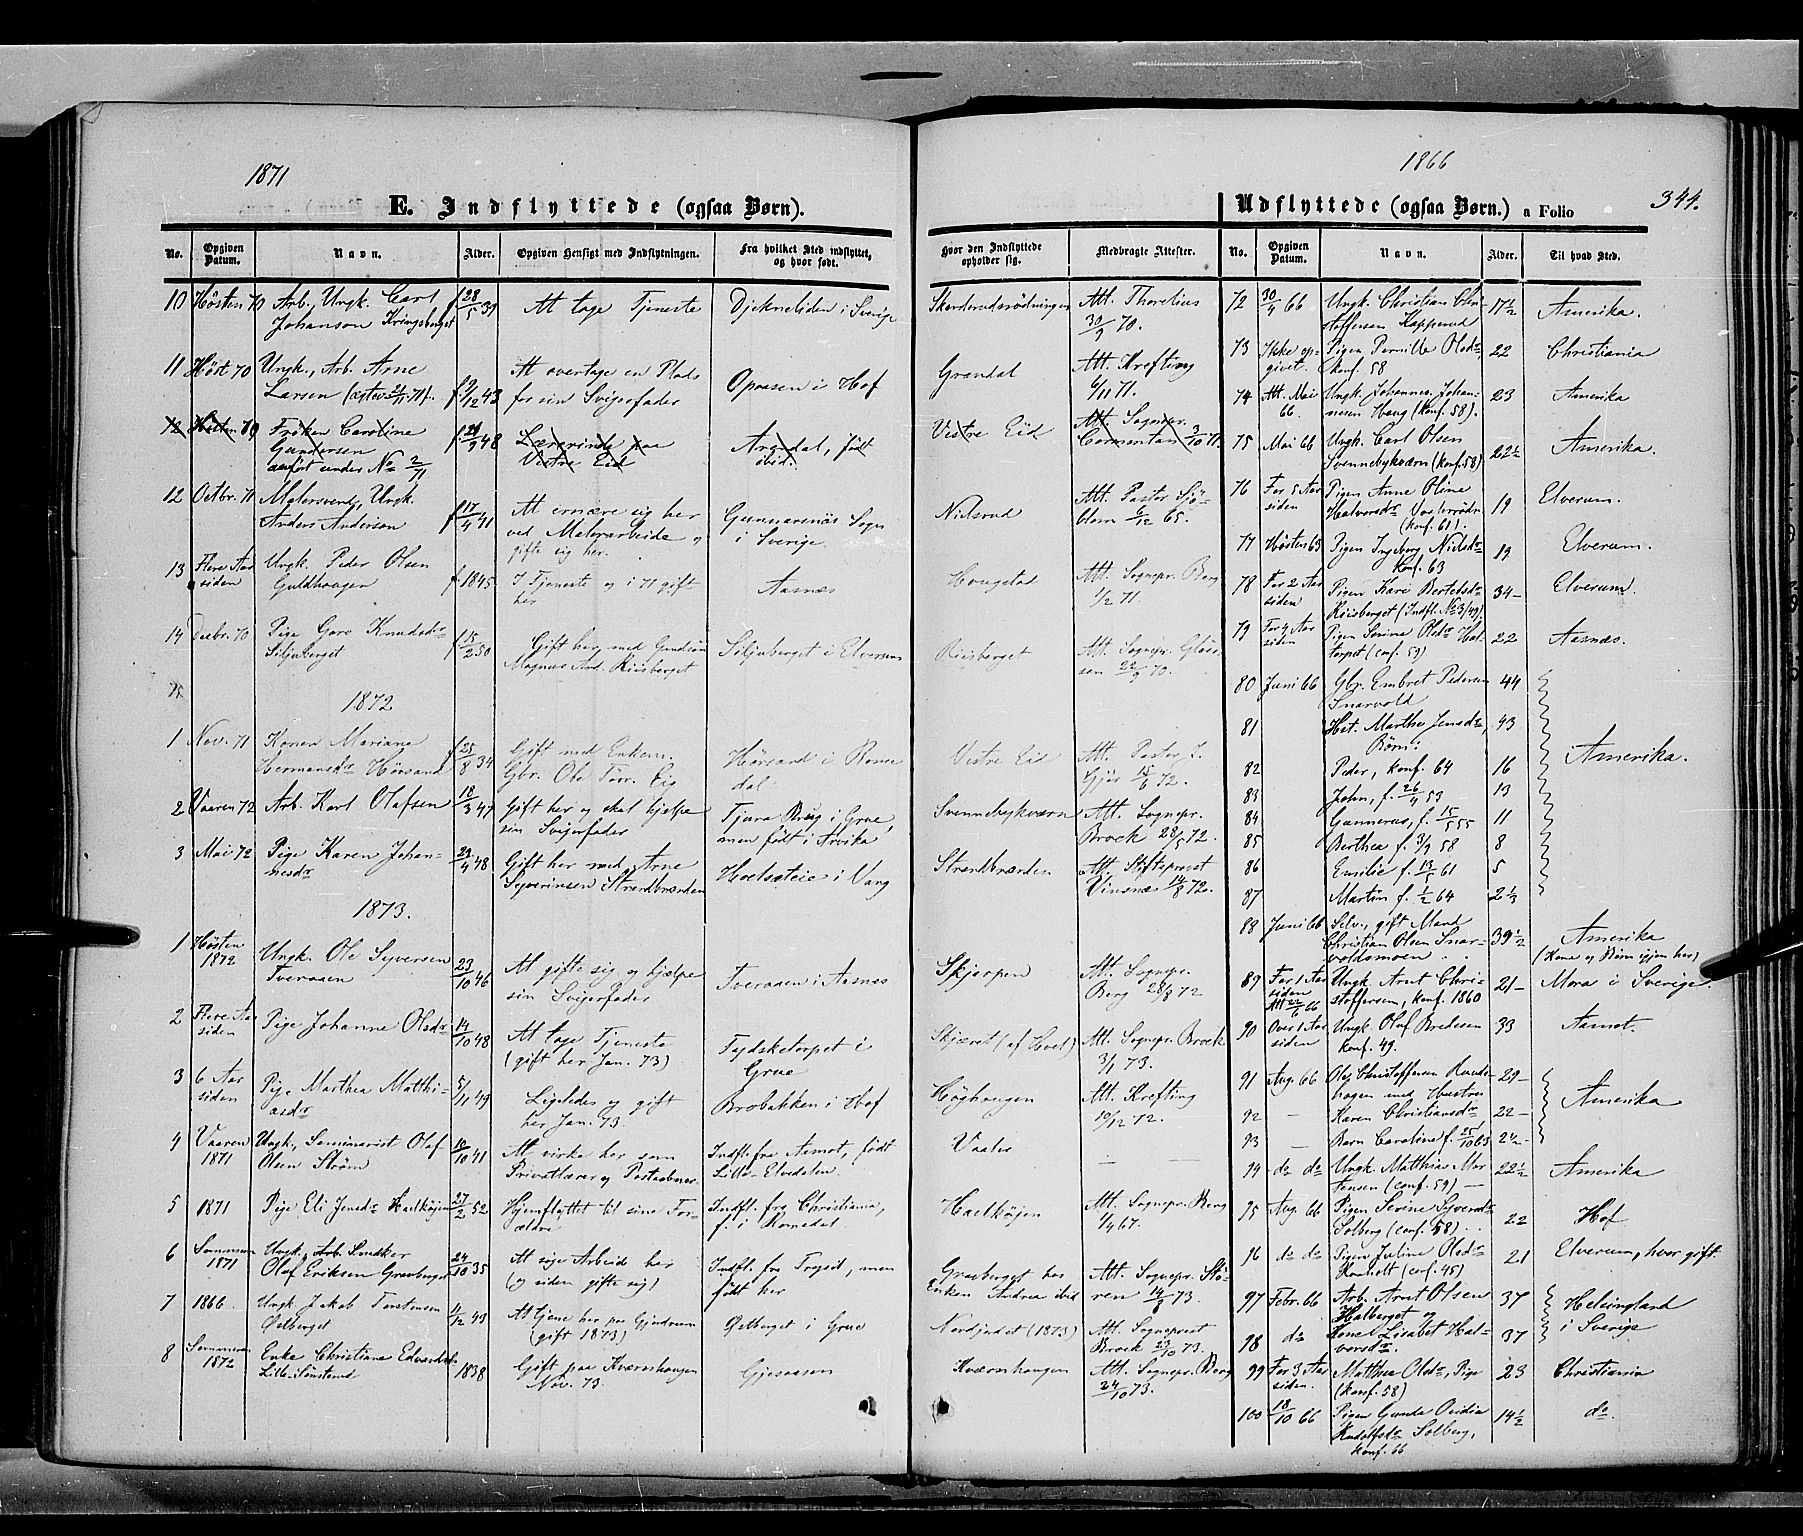 1871
E. Indflyttede (ogsaa Børn).
No. Opgiven Datum. Navn. Alder. Opgiven Hensigt med Indflytningen. Fra hvilket Sted indflyttet, og hvor født. Hvor den Indflyttede opholder sig. Medbragte Attester.
10 Høsten 70 Arb., Ungk. Carl f. 28/5 39 At tage Tjeneste Djekneliden i Sverige Skarderudsrødningen Att. Thorelius
Johanson Kringsberget 30/9 70.
11 Høst. 70 Ungk., Arb. Arne At overtage en Plads Grandal Att. Krefting
Larsen f. 9/12 43 for sin Svigerfader Opaasen i Hof 6/11 71.
12 Høsten 70 Frøken Caroline f. 48 Lærerinde paa Arendal, født Vestre Eid Att. Sognepr.
Gundersen Vestre Eid ibid. 3/10 71.
anført under No 2/71
12 Octbr. 71 Malersvend, Ungk. At ernære sig her Att. Pastor Sjö-
Anders Andersen f. 17/4 41 ved Malerarbeide og Gunnarsnäs Sogn Nielsrud blom 6/12 65.
gifte sig her. i Sverige
13 Flere Aar Ungk. Peder Olsen I Tjeneste og i 71 gift Att. Sognepr. Berg
siden Guldhaugen f. 1845 her Aasnæs Haugstad 1/2 71.
14 Decbr. 70 Pige Goro Knudsdr f. 15/2 50 Gift her med Siljuberget i Elverum Riisberget Att. Sognepr.
Siljuberget Magnus And. Riisberget 22/9 70.
1872
1 Nov. 71 Konen Mariane f. 25/8 34 Gift med Enkem. Hørsand i Rome- Vestre Eid Att. Pastor J.
Hermansdr Hørsand Gbr. Ole Torr. Eig dal 72.
2 Vaaren 72 Arb. Karl Olafsen 18/3 47 Gift her og skal hjelpe Tjura Brug i Grue, Svennebykværn Att. Sognepr.
sin Svigerfader men født i Arvika Brock 28/5 72.
3 Mai 72 Pige Karen Johan- 29/4 48 Gift her med Arne Hoelsæteie i Vang Strandbrænden Att. Stiftsprovst
nesdr Syverinsen Strandbrænden Vinsnæs 14/8 72.
1873.
1 Høsten Ungk. Ole Syversen 23/10 46 At gifte sig og hjelpe Tveraaen i Aasnæs Skjærpen Att. Sognepr.
1872 Tveraaen sin Svigerfader Berg 28/8 72
2 Flere Aar Pige Johanne Olsdr 14/10 48 At tage Tjeneste Tydsketorpet i Skjæret (af Hoel) Att. Sognepr. Brock
siden (gift her Jan. 73) Grue 3/1 73.
3 6 Aar Pige Marthea Matthi- 5/11 49 Ligeledes og gift Brobakken i Hof Høghaugen Att. Krefting
siden asdr her Jan. 73 19/12 72.
4 Vaaren Ungk., Seminarist Olaf 18/10 41 At virke her som Indfl. fra Aamot, født Vaaler — —
1871 Olsen Strøm Privatlærer og Postaabner. Lille-Elvedalen
5 1871 Pige Eli Jensdr Haelkøjen 27/2 52 Hjemflyttet til sine For- Indfl. fra Christiania, Haelkøjen Att. Sognepr. Berg
ældre f. i Romedal 1/4 67.
6 Sommeren Ungk., Arb. Snedker 24/10 35 At søge Arbeid her Indfl. fra Trysil, men Graaberget hos Att. Sognepr. Stö-
1871 Olaf Eriksen Graaberget (og siden gifte sig) født her Enken Andrea ibid ren 14/8 73.
7 1866. Ungk. Jakob Torstensen 4/12 43 At tjene her paa Gjudrum Øetberget i Grue Nordjudet (1873) Att. Sogneprest
Øetberget (gift 1873) Brock 23/10 73.
8 Sommeren Enke Christiane Edvardsdr 1838 Gift paa Kværnhaugen Gjesaasen Kværnhaugen Att. Sognepr. Berg
1872 Lille-Sønsterud Nov. 73 24/10 73.
1866
344.
Udflyttede (ogsaa Børn.) a Folio
No. Opgiven Datum. Navn. Alder. Til hvad Sted.
72 30/4 66 Ungk. Christian Chri- 17½ Amerika.
stoffersen Kapperud
73 Ikke op- Pigen Pernille Olsdr, 22 Christiania
givet. Konf. 58
74 Att. Mai Ungk. Johannes Johan- 23 Amerika
66. nesen Haug (konf. 58).
75 Mai 66 Ungk. Carl Olsen 22½ Amerika.
Svennebykværn (konf. 58)
76 For 5 Aar Pigen Anne Oline 19 Elverum.
siden Halvorsdr
(konf. 61).
77 Høsten 63 Pigen Ingeborg Nielsdr 19 Elverum.
Konf. 63
78 For 2 Aar Pigen Kari Bertelsdr 34- Elverum.
siden Riisberget (Indfl. No 3/49)
79 For 4 Aar Pigen Serine Olsdr Hal- 22 Aasnæs.
siden torpet (conf. 59)
80 Juni 66 Gbr. Embret Pedersen 44
Snarvold
81 Hst. Marthe Jensdr, 43
Børn: Amerika.
82 Peder, konf. 64 16
83 John, f. 26/4 53 13
84 Gunnerus, f. 15/5 55 11
85 Berthea f. 3/9 58 8
86 Emilie f. 61 5
87 Martin f. 1/2 64 2⅓
88 Juni 66 Selv., gift Mand 39½ Amerika
Christian Olsen Snar- (Kone og Børn igjen her)
voldsmoen
89 For 1 Aar Ungk. Arnt Chri- 21- Mora i Sverige.
siden stoffersen, konf. 1860
Att 22/6 66
90 Over 1 Aar Ungk. Olaf Bredesen 33 Aamot.
siden Konf. 49.
91 Aug. 66 Olej Christoffersen 29-
haugen med Hustru Amerika
92 — Karen Christiansdr 22-
93 — Barn Caroline f. 25/10 63 2½-
94 do do Ungk. Matthias Mor- 22½ Amerika
tensen (conf. 59) —
95 Aug. 66 Pigen Serine Syversdr 22 Hof
Solberg (conf. 58)
96 do do Pigen Juline Olsdr 21 Elverum, hvor gift
(conf. 45)
97 Febr. 66 Arb. Arnt Olsen 37 Helsingland
Halberget og i Sverige
98 do Kone Lisabet Hal- 37
vorsdr.
99 For 3 Aar Matthea Olsdr, Pige 23 Christiania
siden. (konf. 58)
100 18/10 66 Pigen Gunda Ovidia 14½ do.
Rudolfsdr Solberg,
konf. 66